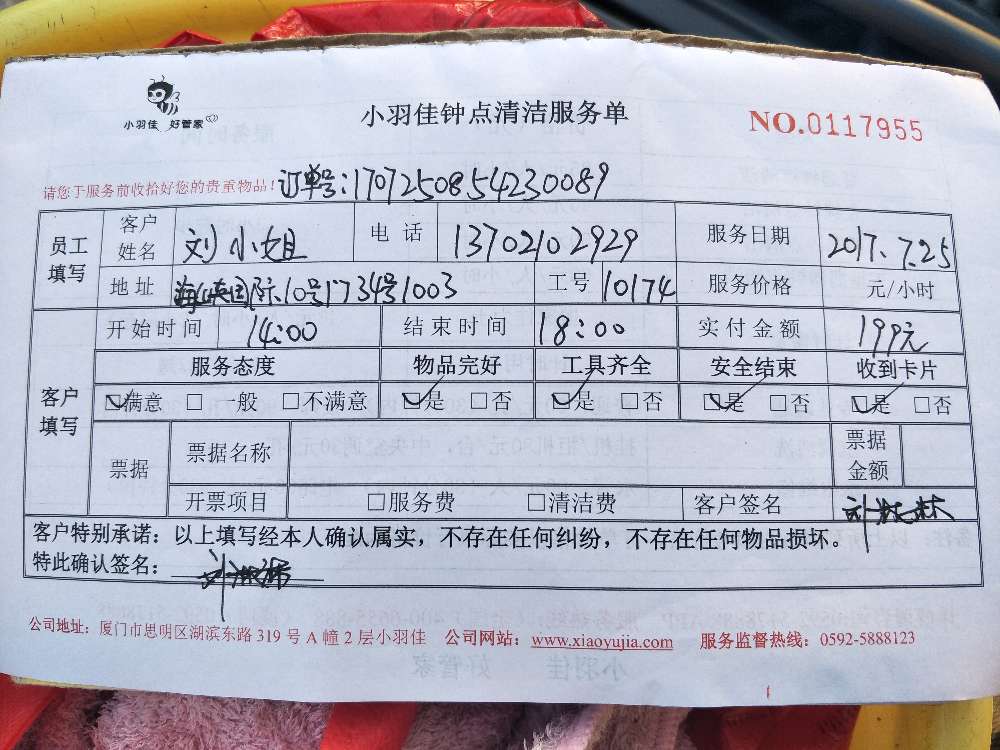 小羽佳 好管家
小羽佳钟点清洁服务单
NO.0117955
请您于服务前收拾好您的贵重物品！订单号:1707250854230089
员工填写 客户姓名 刘小姐 电话 13702102929 服务日期 2017.7.25
地址 10号1734号1003 工号 10174 服务价格 元/小时
客户填写 开始时间 14:00 结束时间 18:00 实付金额 199元
服务态度 物品完好 工具齐全 安全结束 收到卡片
☑满意 □一般 □不满意 ☑是 □否 ☑是 □否 ☑是 □否 ☑是 □否
票据 票据名称 票据金额
开票项目 □服务费 □清洁费 客户签名
客户特别承诺：以上填写经本人确认属实，不存在任何纠纷，不存在任何物品损坏。
特此确认签名：
公司地址：厦门市思明区湖滨东路 319 号 A 幢 2 层小羽佳 公司网站：www.xiaoyujia.com 服务监督热线：0592-5888123